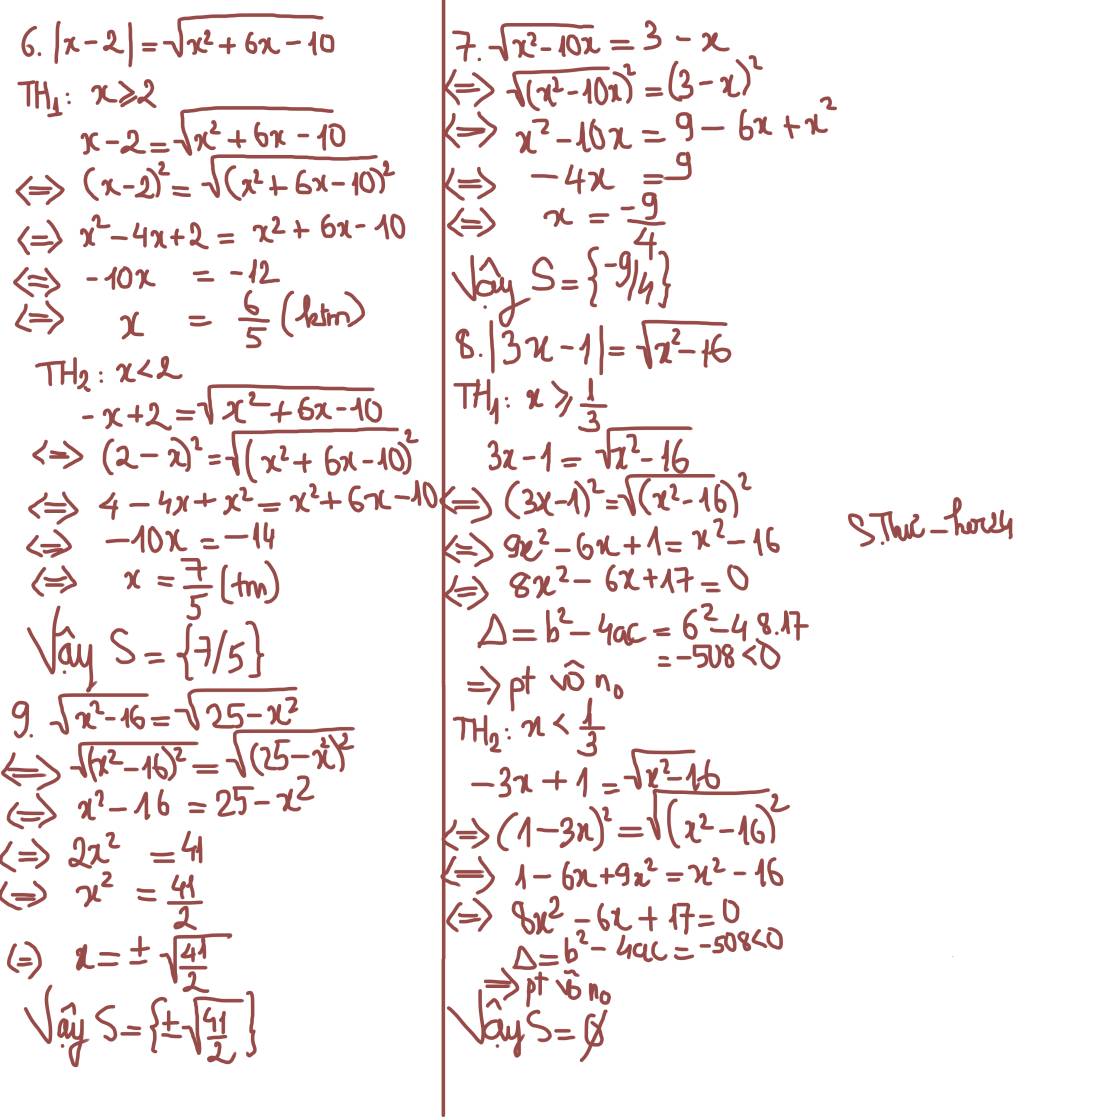 6. |x-2| = √(x² + 6x - 10)
TH₁: x ≥ 2
x-2 = √(x² + 6x - 10)
<=> (x-2)² = √(x² + 6x - 10)²
<=> x² - 4x + 2 = x² + 6x - 10
<=> -10x = -12
<=> x = 6/5 (ktm)
TH₂: x < 2
-x+2 = √(x² + 6x - 10)
<=> (2 - x)² = √(x² + 6x - 10)²
<=> 4 - 4x + x² = x² + 6x - 10
<=> -10x = -14
<=> x = 7/5 (tm)
Vậy S = {7/5}
9. √(x² - 16) = √(25 - x²)
<=> √(x² - 16)² = √(25 - x²)²
<=> x² - 16 = 25 - x²
<=> 2x² = 41
<=> x² = 41/2
<=> x = ± √(41/2)
Vậy S = {± √(41/2)}
7. √(x² - 10x) = 3 - x
<=> √(x² - 10x)² = (3 - x)²
<=> x² - 10x = 9 - 6x + x²
<=> -4x = 9
<=> x = -9/4
Vậy S = {-9/4}
8. |3x - 1| = √(x² - 16)
TH₁: x ≥ 1/3
3x - 1 = √(x² - 16)
<=> (3x - 1)² = √(x² - 16)²
<=> 9x² - 6x + 1 = x² - 16
<=> 8x² - 6x + 17 = 0
Δ = b² - 4ac = 6² - 4 8.17
= -508 < 0
=> pt vô n₀
TH₂: x < 1/3
-3x + 1 = √(x² - 16)
<=> (1 - 3x)² = √(x² - 16)²
<=> 1 - 6x + 9x² = x² - 16
<=> 8x² - 6x + 17 = 0
Δ = b² - 4ac = -508 < 0
=> pt vô n₀
Vậy S = ∅